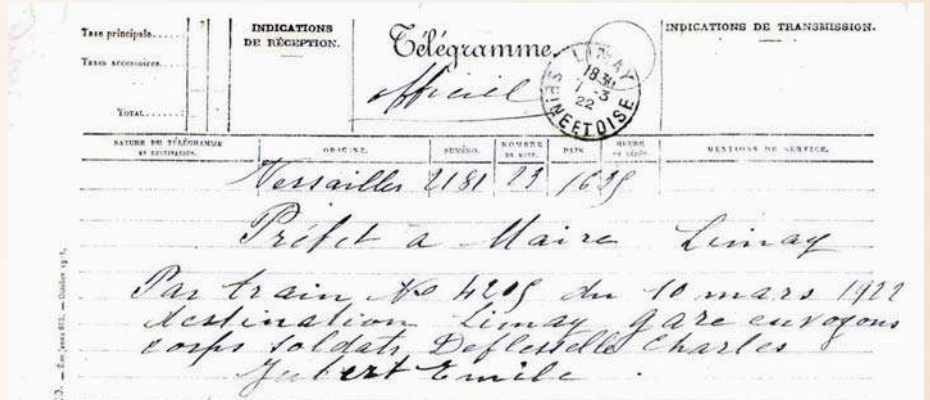 Taxe principale......
Taxes accessoires.......
TOTAL.........
INDICATIONS
DE RÉCEPTION.
Télégramme.
officiel
INDICATIONS DE TRANSMISSION.
LIMAY
1830
1-3
22
SEINE ET OISE
NATURE DU TÉLÉGRAMME
ET DESTINATION.
ORIGINE.
NUMÉRO.
NOMBRE
DE MOTS.
DATE
HEURE
DE DÉPÔT.
MENTIONS DE SERVICE.
Versailles 2181 23
Préfet à Maire Limay
Par train No 4205 du 10 mars 1922
destination Limay gare envoyons
corps soldats Charles
Emile